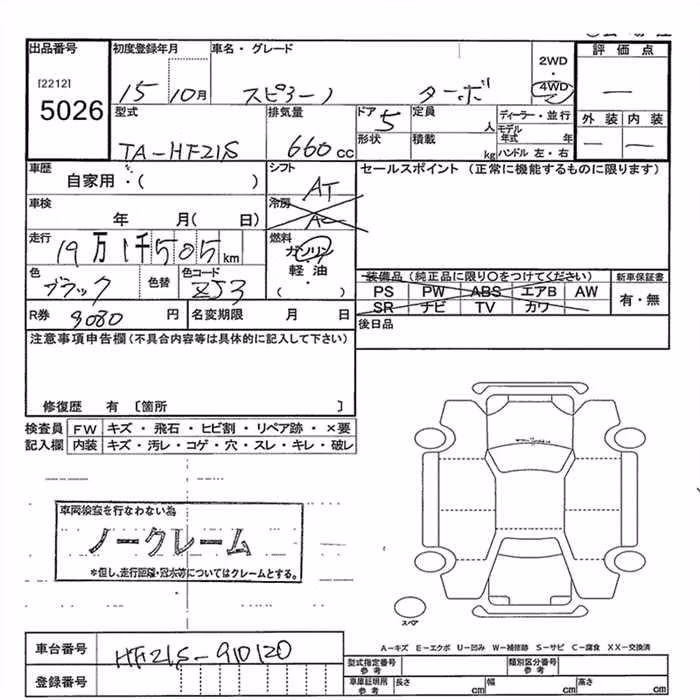 出品番号 初度登録年月 車名・グレード 評価点
[2212] 2WD
・
5026 15 10月 スピアーノ ターボ 4WD —
型式 排気量 ドア 5 定員 人 ディーラー・並行 外装 内装
TA-HF21S 660cc 形状 積載 kg モデル年式 年 — —
ハンドル 左・右
車歴 自家用・( ) シフト AT セールスポイント (正常に機能するものに限ります)
車検 年 月( 日) 冷房 AC
走行 19万1千505km 燃料 ガソリン
軽油
・
( )
色 ブラック 色替 色コード ZJ3 装備品 (純正品に限り○をつけてください) 新車保証書
PS PW ABS エアB AW 有・無
R券 9080円 名変期限 月 日 SR ナビ TV カワ
注意事項申告欄 (不具合内容等は具体的に記入して下さい) 後日品
修復歴 有 〔箇所 〕
検査員 FW キズ・飛石・ヒビ割・リペア跡・×要
記入欄 内装 キズ・汚レ・コゲ・穴・スレ・キレ・破レ
車両検査を行なわない為
ノークレーム
*但し、走行距離・冠水等についてはクレームとする。
スペア
A-キズ E-エクボ U-凹み W-補修跡 S-サビ C-腐食 XX-交換済
車台番号 HF21S-910120
型式指定番号 参考 類別区分番号 参考
登録番号 車庫証明所 参考 長さ cm 幅 cm 高さ cm